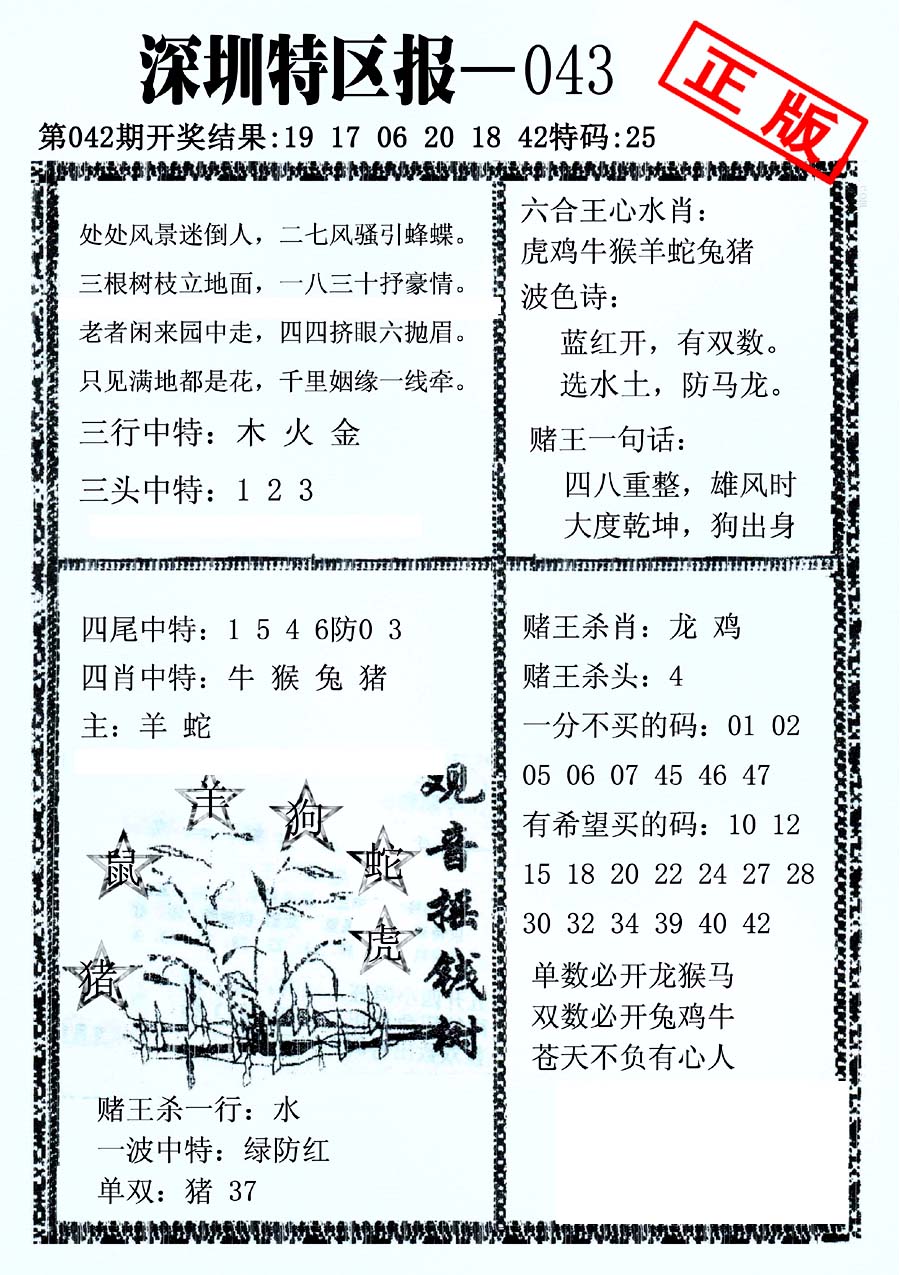 深圳特区报—043
正版
第042期开奖结果:19 17 06 20 18 42特码:25
处处风景迷倒人，二七风骚引蜂蝶。
三根树枝立地面，一八三十抒豪情。
老者闲来园中走，四四挤眼六抛眉。
只见满地都是花，千里姻缘一线牵。
三行中特：木 火 金
三头中特：1 2 3
六合王心水肖：
虎鸡牛猴羊蛇兔猪
波色诗：
蓝红开，有双数。
选水土，防马龙。
赌王一句话：
四八重整，雄风时
大度乾坤，狗出身
四尾中特：1 5 4 6防0 3
四肖中特：牛 猴 兔 猪
主：羊 蛇
羊
狗
鼠
蛇
虎
猪
观音摇钱树
赌王杀一行：水
一波中特：绿防红
单双：猪 37
赌王杀肖：龙 鸡
赌王杀头：4
一分不买的码：01 02
05 06 07 45 46 47
有希望买的码：10 12
15 18 20 22 24 27 28
30 32 34 39 40 42
单数必开龙猴马
双数必开兔鸡牛
苍天不负有心人